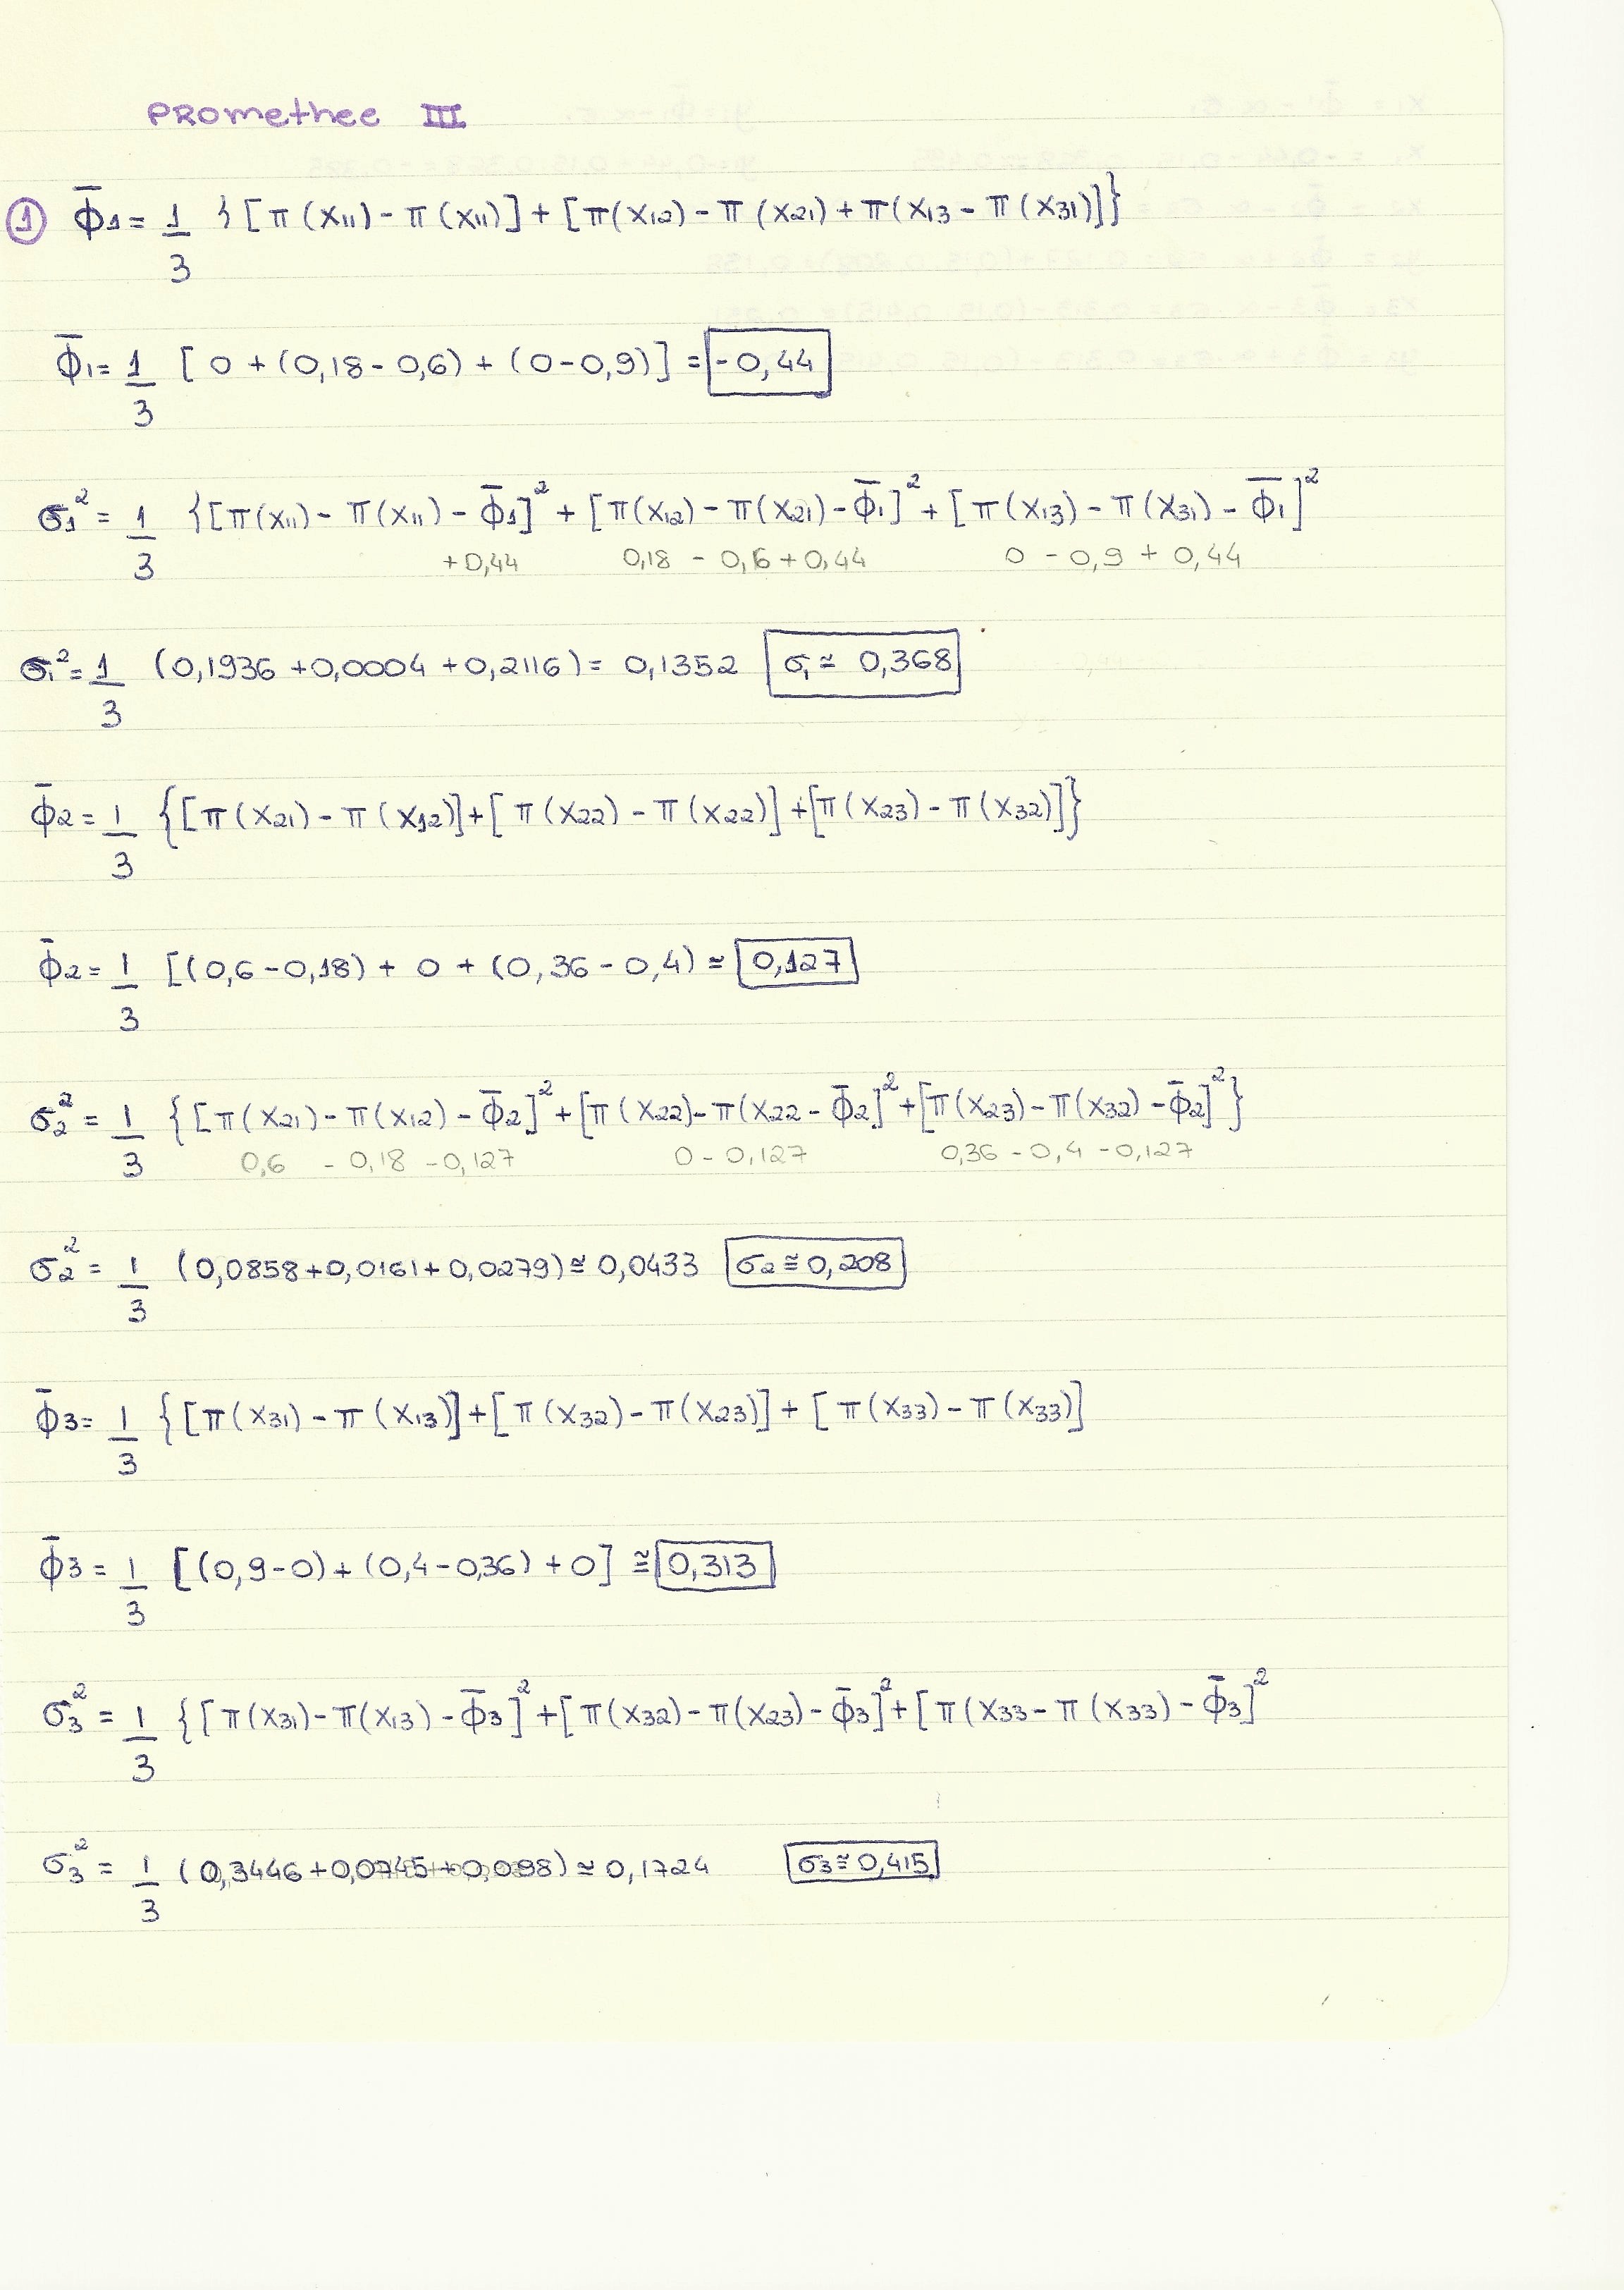 PROMETHEE III
① Φ̄1 = 1/3 }[π(x11) - π(x11)] + [π(x12) - π(x21) + π(x13 - π(x31)]}
Φ̄1 = 1/3 [0 + (0,18 - 0,6) + (0 - 0,9)] = -0,44
σ1² = 1/3 {[π(x11) - π(x11) - Φ̄1]² + [π(x12) - π(x21) - Φ̄1]² + [π(x13) - π(x31) - Φ̄1]²
+0,44 0,18 - 0,6 + 0,44 0 - 0,9 + 0,44
σ1² = 1/3 (0,1936 + 0,0004 + 0,2116) = 0,1352 σ1 ≅ 0,368
Φ̄2 = 1/3 {[π(x21) - π(x12)] + [π(x22) - π(x22)] + [π(x23) - π(x32)]}
Φ̄2 = 1/3 [(0,6 - 0,18) + 0 + (0,36 - 0,4) ≅ 0,127
σ2² = 1/3 {[π(x21) - π(x12) - Φ̄2]² + [π(x22) - π(x22 - Φ̄2]² + [π(x23) - π(x32) - Φ̄2]²}
0,6 - 0,18 - 0,127 0 - 0,127 0,36 - 0,4 - 0,127
σ2² = 1/3 (0,0858 + 0,0161 + 0,0279) ≅ 0,0433 σ2 ≅ 0,208
Φ̄3 = 1/3 {[π(x31) - π(x13)] + [π(x32) - π(x23)] + [π(x33) - π(x33)]
Φ̄3 = 1/3 [(0,9 - 0) + (0,4 - 0,36) + 0] ≅ 0,313
σ3² = 1/3 {[π(x31) - π(x13) - Φ̄3]² + [π(x32) - π(x23) - Φ̄3]² + [π(x33 - π(x33) - Φ̄3]²
σ3² = 1/3 (0,3446 + 0,0745 + 0,098) ≅ 0,1724 σ3 ≅ 0,415